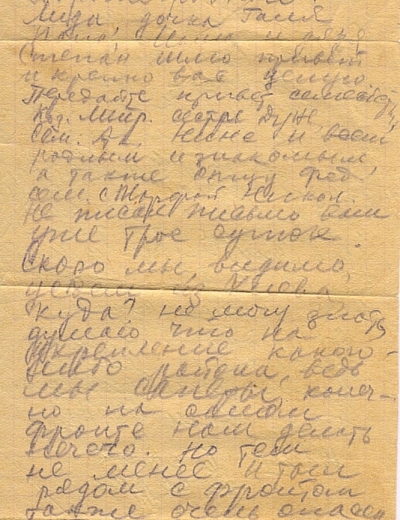 Лида, дочка Галя
Папа, мама и дядя
Степан шлю привет
и крепко вас целую.
Передайте привет семейству
сестре Дуж,
Сем. Ан. Нюне и всем
родным и знакомым,
а также отцу Фед.
сем. с Никол.
Не писал письмо вам
уже трое суток.
Скоро мы, видимо,
уедем из
куда? не могу знать
думаю что на
укрепление какого-
либо района, ведь
мы саперы, конеч-
но на самом
фронте нам делать
нечего. Но тем
не менее и там
рядом с фронтом
также очень опасен